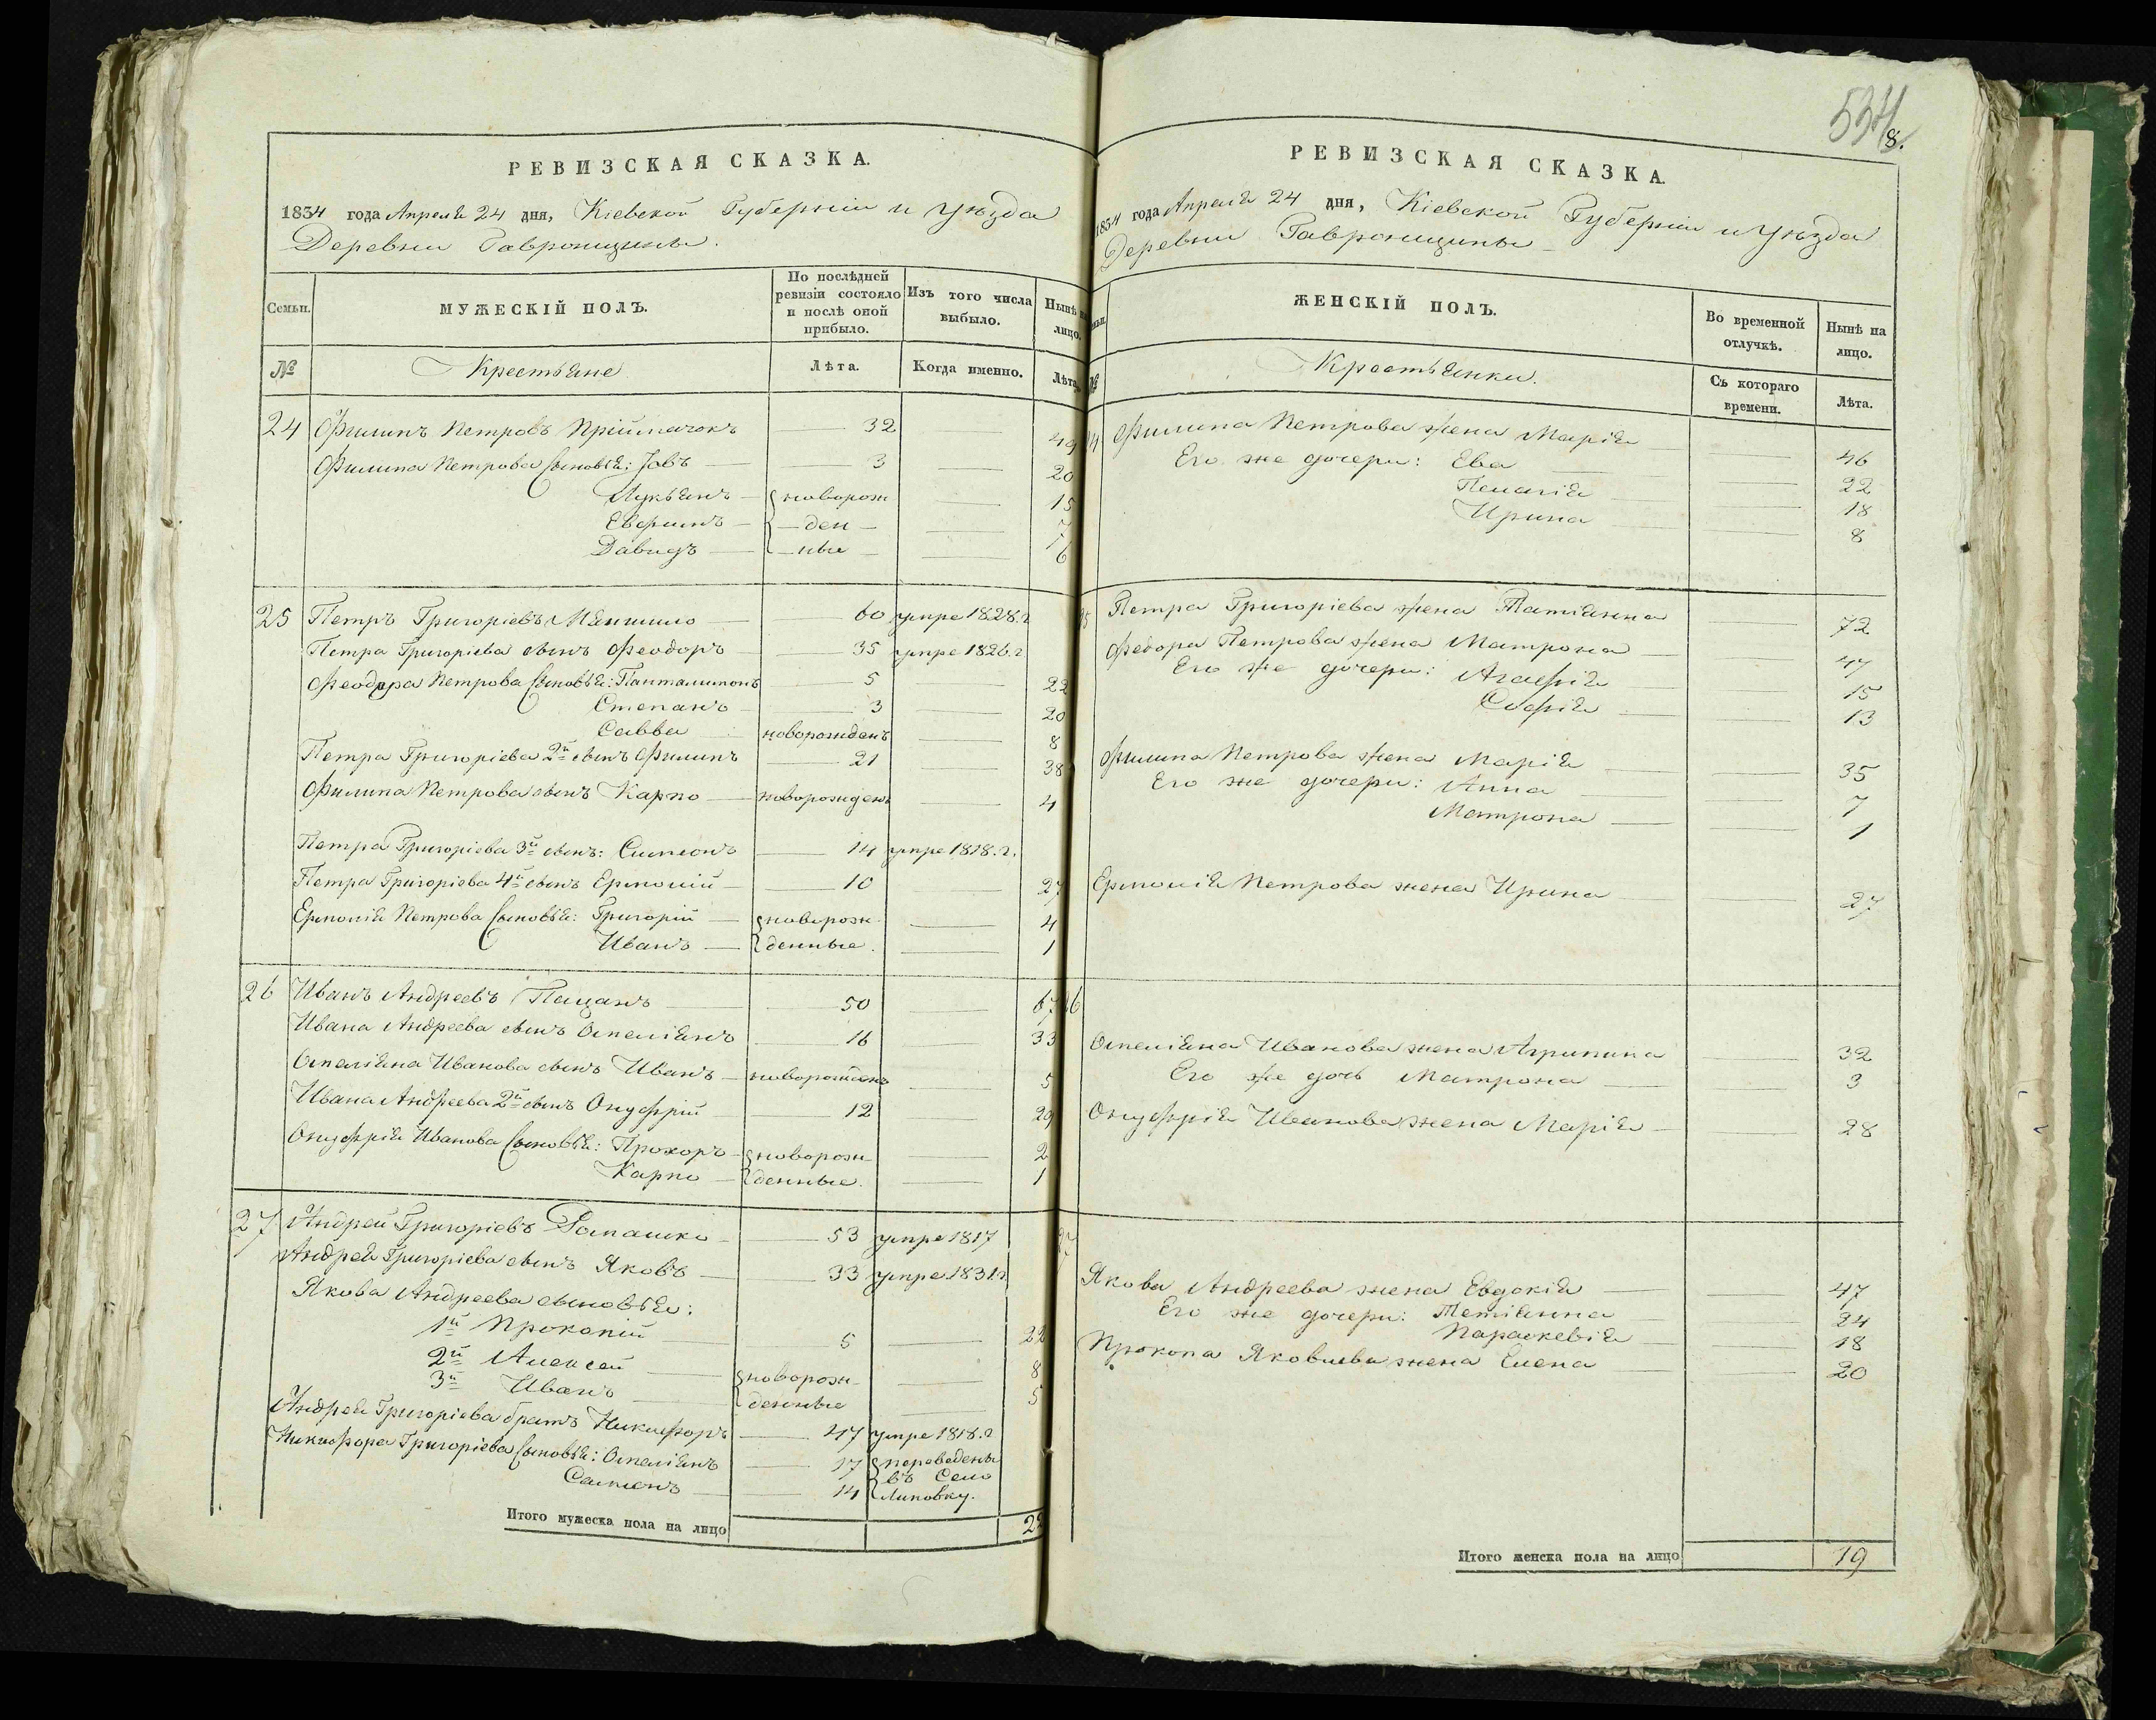 534
8.
РЕВИЗСКАЯ СКАЗКА.
1834 года Апреля 24 дня, Кіевской Губерніи и Уѣзда
Деревни Гавронщины.
Семьи.
МУЖЕСКІЙ ПОЛЪ.
По послѣдней ревизіи состояло и послѣ оной прибыло.
Изъ того числа выбыло.
Нынѣ на лицо.
№
Крестьяне
Лѣта.
Когда именно.
Лѣта.
24 Филипъ Петровъ Пріймачокъ 32 49
Филипа Петрова сыновья: Іовъ 3 20
Лукьянъ новорож 15
Евфимъ ден 7
Давидъ ные 6
25 Петръ Григоріевъ 60 умре 1828.г
Петра Григоріева сынъ Феодоръ 35 умре 1826.г
Феодора Петрова сыновья: Панталимонъ 5 22
Степанъ 3 20
Савва новорожденъ 8
Петра Григоріева 2й сынъ Филипъ 21 38
Филипа Петрова сынъ Карпо новорожденъ 4
Петра Григоріева 3й сынъ: Симеонъ 14 умре 1818.г.
Петра Григоріева 4й сынъ Ермолій 10 27
Ермолія Петрова сыновья: Григорій новорож 4
Иванъ денные. 1
26 Иванъ Андреевъ Пацанъ 50 67
Ивана Андреева сынъ Омеліянъ 16 33
Омеліяна Иванова сынъ Иванъ новорожденъ 5
Ивана Андреева 2й сынъ Онуфрій 12 29
Онуфрія Иванова сыновья: Прохоръ новорож 2
Карпо денные. 1
27 Андрей Григоріевъ 53 умре 1817
Андрея Григоріева сынъ Яковъ 33 умре 1831.г
Якова Андреева сыновья:
1й Прокопій 5 22
2й Алексей новорож 8
3й Иванъ денные 5
Андрея Григоріева братъ Никифоръ 47 умре 1818.г
Никифора Григоріева сыновья: Омеліянъ 17 переведены
въ Село
Самсонъ 14 Липовку.
Итого мужеска пола на лицо 22
РЕВИЗСКАЯ СКАЗКА.
1834 года Апреля 24 дня, Кіевской Губерніи и Уѣзда
Деревни Гавронщины
ЖЕНСКІЙ ПОЛЪ.
Во временной отлучкѣ.
Нынѣ на лицо.
№
Крестьянки.
Съ котораго времени.
Лѣта.
Филипа Петрова жена Марія 46
Его же дочери: Ева 22
Пелагія 18
Ирина 8
Петра Григоріева жена Татіянна 72
Федора Петрова жена Матрона 47
Его же дочери: Агафія 15
Софія 13
Филипа Петрова жена Марія 35
Его же дочери: Анна 7
Матрона 1
Ермолія Петрова жена Ирина 27
Омеліяна Иванова жена Агрипина 32
Его же дочь Матрона 3
Онуфрія Иванова жена Марія 28
27
Якова Андреева жена Евдокія 47
Его же дочери: Тетіянна 24
Параскевія 18
Прокопа Яковлева жена Елена 20
Итого женска пола на лицо 19